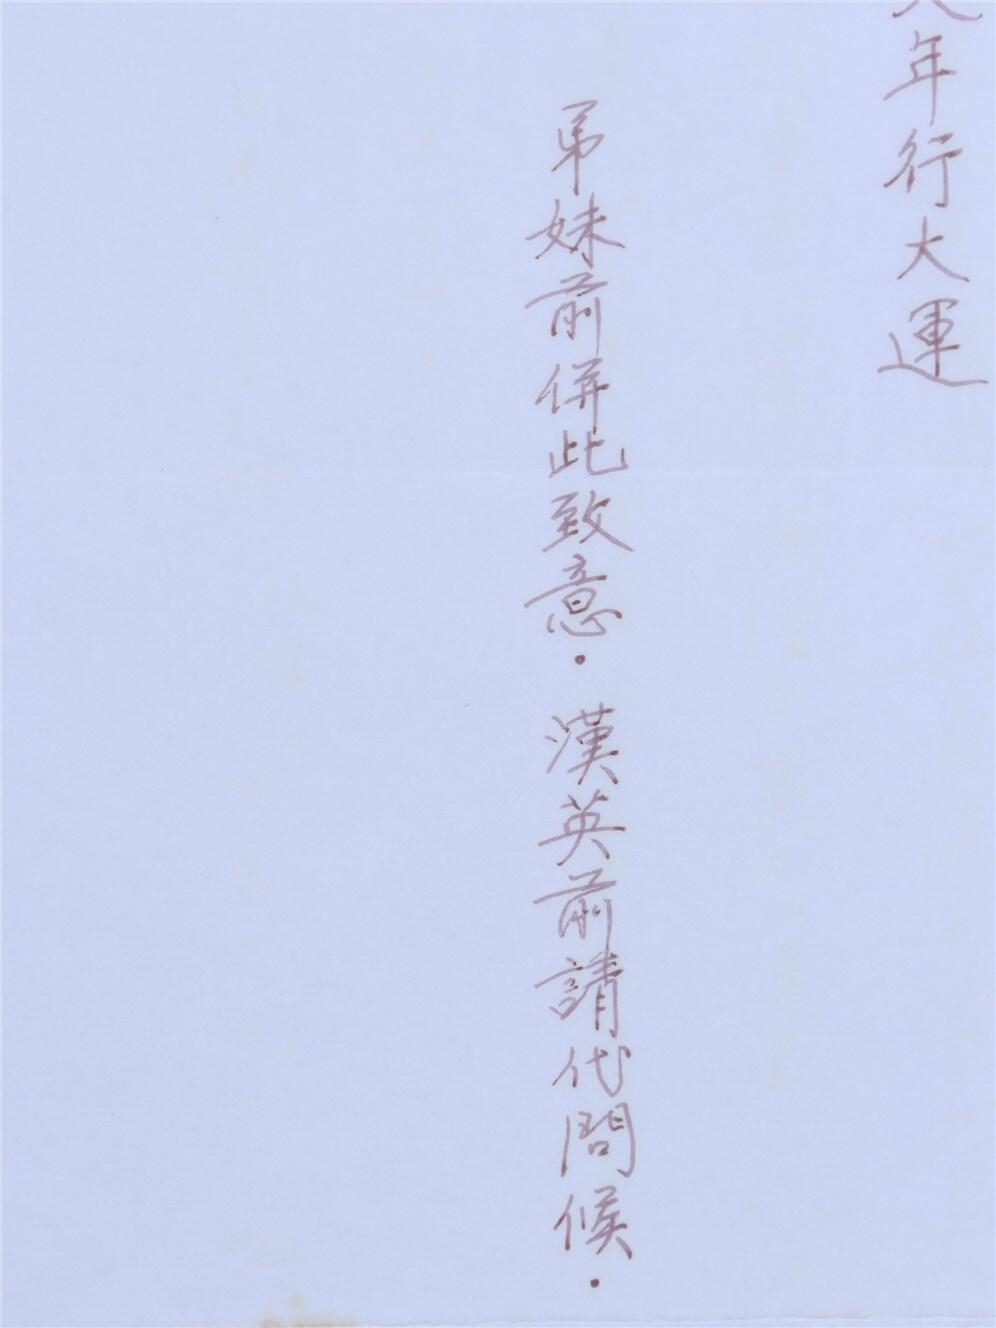 年行大運
弟妹前併此致意．漢英前請代問候．